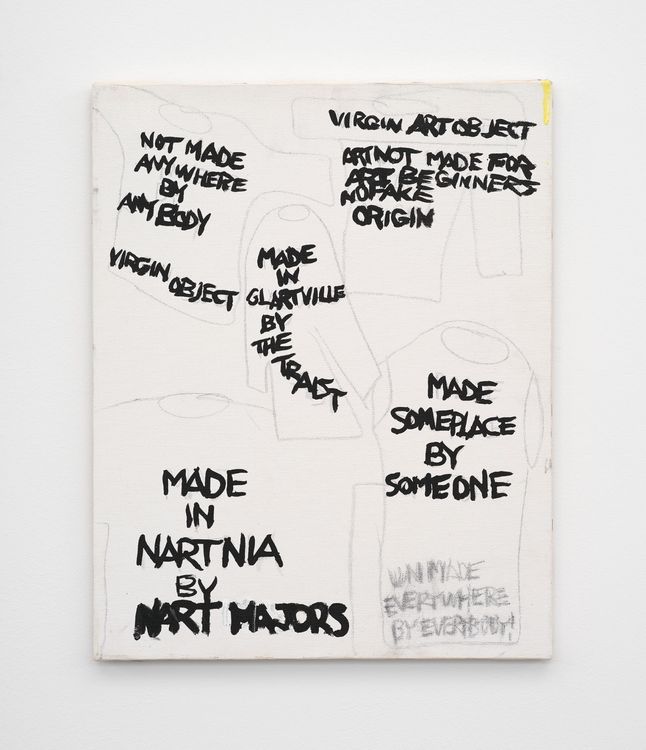 NOT MADE
ANYWHERE
BY
ANYBODY
VIRGIN
OBJECT
VIRGIN ART OBJECT
ART NOT MADE FOR
ART BEGINNERS
NO FAKE
ORIGIN
MADE
IN
GLARTVILLE
BY
THE
TRAIST
MADE
SOMEPLACE
BY
SOMEONE
MADE
IN
NARTNIA
BY
NART MAJORS
UNMADE
EVERYWHERE
BY EVERYBODY!